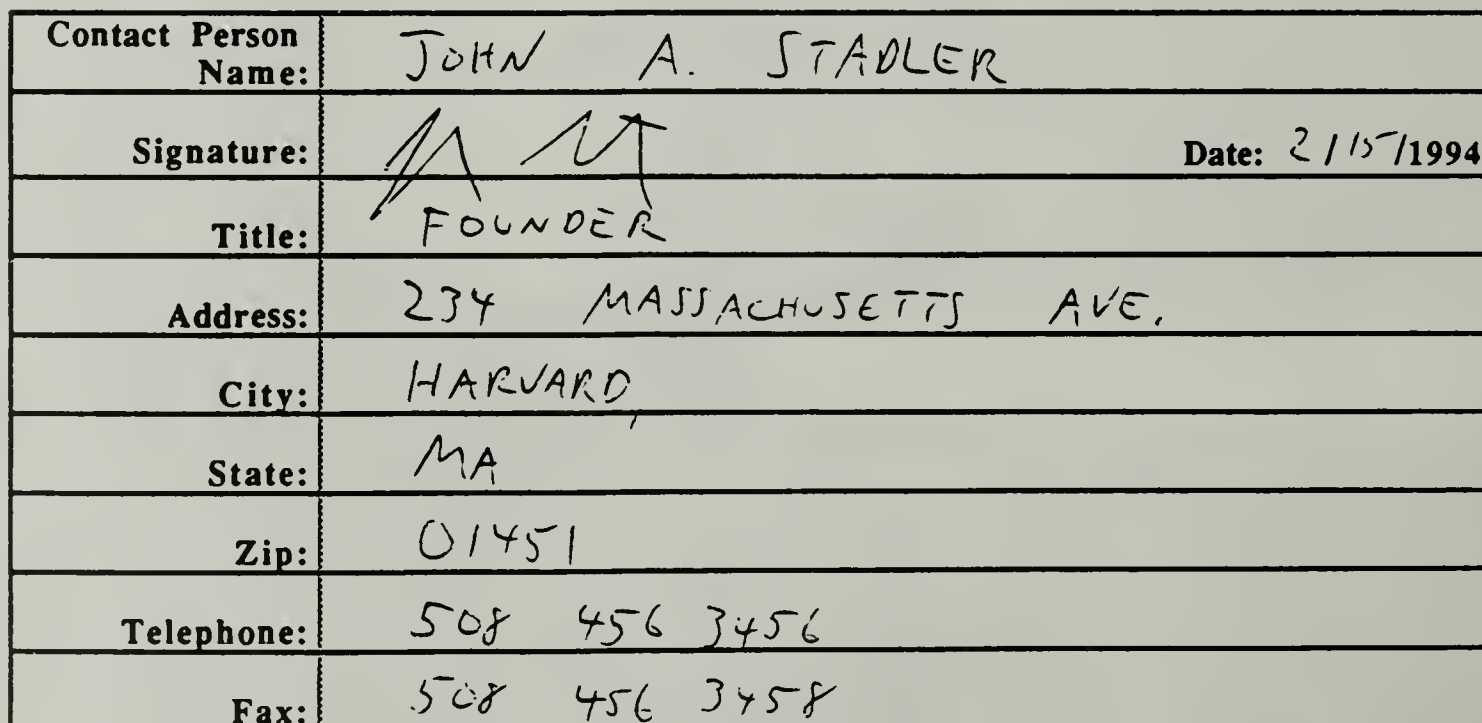 Contact Person
Name: JOHN A. STADLER
Signature: Date: 2/15/1994
Title: FOUNDER
Address: 234 MASSACHUSETTS AVE.
City: HARVARD,
State: MA
Zip: 01451
Telephone: 508 456 3456
Fax: 508 456 3458